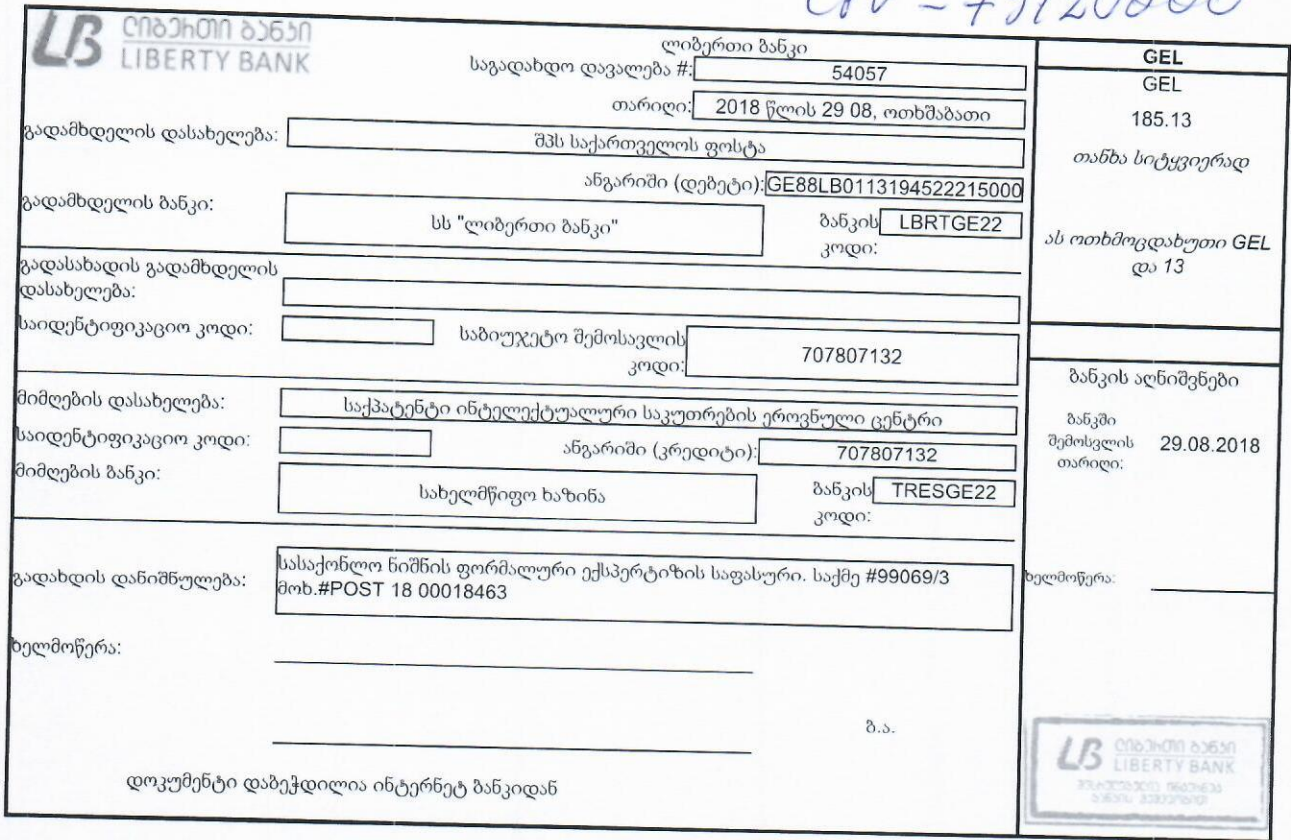 ლიბერთი ბანკი
LIBERTY BANK
ლიბერთი ბანკი
საგადახდო დავალება #: 54057
თარიღი: 2018 წლის 29 08, ოთხშაბათი
გადამხდელის დასახელება: შპს საქართველოს ფოსტა
ანგარიში (დებეტი): GE88LB0113194522215000
გადამხდელის ბანკი: სს "ლიბერთი ბანკი" ბანკის კოდი: LBRTGE22
გადასახადის გადამხდელის
დასახელება:
საიდენტიფიკაციო კოდი: საბიუჯეტო შემოსავლის კოდი: 707807132
მიმღების დასახელება: საქპატენტი ინტელექტუალური საკუთრების ეროვნული ცენტრი
საიდენტიფიკაციო კოდი: ანგარიში (კრედიტი): 707807132
მიმღების ბანკი: სახელმწიფო ხაზინა ბანკის კოდი: TRESGE22
გადახდის დანიშნულება: სასაქონლო ნიშნის ფორმალური ექსპერტიზის საფასური. საქმე #99069/3
მოხ.#POST 18 00018463
ხელმოწერა:
ბ.ა.
დოკუმენტი დაბეჭდილია ინტერნეტ ბანკიდან
GEL
GEL
185.13
თანხა სიტყვიერად
ას ოთხმოცდახუთი GEL
და 13
ბანკის აღნიშვნები
ბანკში
შემოსვლის 29.08.2018
თარიღი:
ხელმოწერა:
ლიბერთი ბანკი
LIBERTY BANK